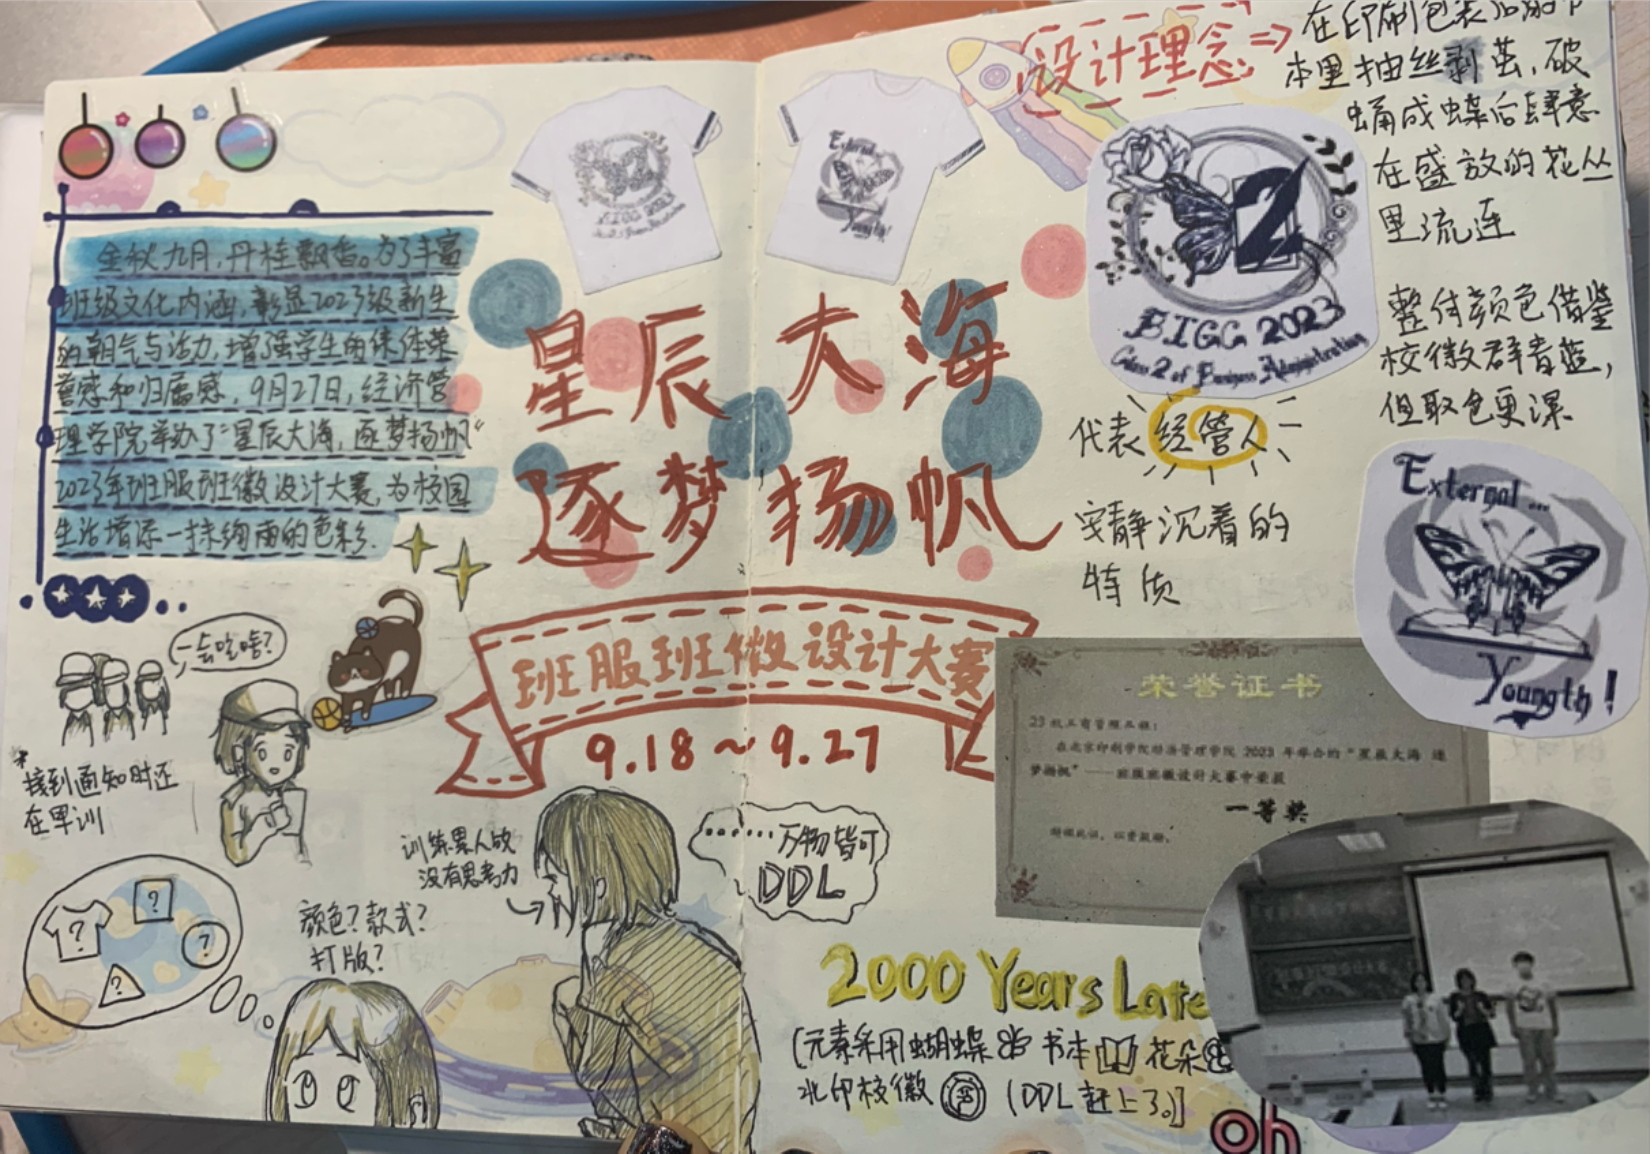 金秋九月，丹桂飘香。为了丰富
班级文化内涵，彰显2023级新生
的朝气与活力，增强学生的集体荣
誉感和归属感，9月27日，经济管
理学院举办了“星辰大海，逐梦扬帆”
2023年班服班徽设计大赛，为校园
生活增添一抹绚丽的色彩.
一会吃啥？
*接到通知时还
在军训
颜色？款式？
打版？
?
?
?
?
训练累人的
没有思考力
BIGC 2023
External
Youngth!
星辰大海
逐梦扬帆
班服班徽设计大赛
9.18～9.27
……万物皆可
DDL
设计理念⇒
在印刷包装
本里抽丝剥茧，破
蛹成蝶后肆意
在盛放的花丛
里流连
2
BIGC 2023
Class 2 of Business Administration
整体颜色借鉴
校徽群青蓝，
但取色更深
代表经管人
安静沉着的
特质
External...
Youngth!
荣誉证书
23级工商管理二班：
在北京印刷学院经济管理学院 2023 年举办的“星辰大海 逐
梦扬帆”——班服班徽设计大赛中荣获
一等奖
特颁此证，以资鼓励。
2000 Years Late
[元素采用蝴蝶 书本 花朵
水印校徽 (DDL赶上了。]
oh